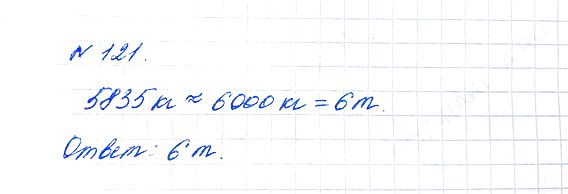 N 121.
5835 кг ≈ 6000 кг = 6 т.
Ответ: 6 т.